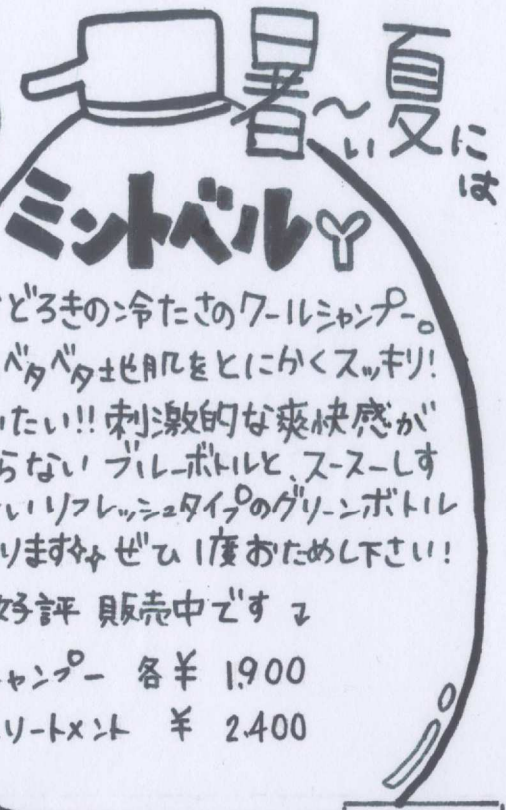 暑～い夏には
ミントベル
どろきの冷たさのクールシャンプー。
ベタベタ地肌をとにかくスッキリ!
たい!!刺激的な爽快感が
らない ブルーボトルと、スースーしす
いリフレッシュタイプのグリーンボトル
ります ぜひ1度おためし下さい!
好評 販売中です
ャンプー 各¥ 1,900
リートメント ¥ 2,400